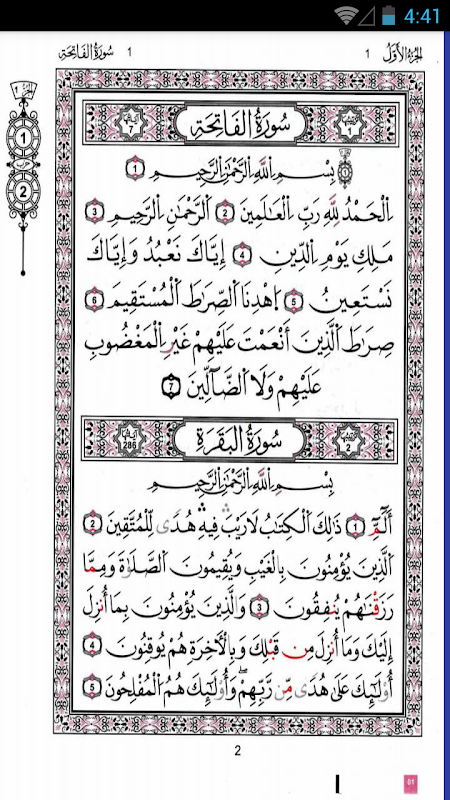 4:41
الجزء الأول 1 1 سورة الفاتحة
الجزء ١
1
حزب
2
سُورَةُ الفَاتِحَة
7
بِسْمِ اِللَّهِ اِلرَّحْمَٰنِ اِلرَّحِيمِ 1
اِلْحَمْدُ لِلَّهِ رَبِّ اِلْعَٰلَمِينَ 2 اَلرَّحْمَٰنِ اِلرَّحِيمِ 3
مَٰلِكِ يَوْمِ اِلدِّينِ 4 إِيَّاكَ نَعْبُدُ وَإِيَّاكَ
نَسْتَعِينُ 5 اِهْدِنَا اَلصِّرَٰطَ اَلْمُسْتَقِيمَ 6
صِرَٰطَ اَلَّذِينَ أَنْعَمْتَ عَلَيْهِمْ غَيْرِ اِلْمَغْضُوبِ
عَلَيْهِمْ وَلَا اَلضَّآلِّينَ 7
سُورَةُ البَقَرَة
2 286
بِسْمِ اِللَّهِ اِلرَّحْمَٰنِ اِلرَّحِيمِ
أَلَٓمِّٓ 1 ذَٰلِكَ اَلْكِتَٰبُ لَا رَيْبَ فِيهِ هُدًى لِّلْمُتَّقِينَ 2
اَلَّذِينَ يُؤْمِنُونَ بِالْغَيْبِ وَيُقِيمُونَ اَلصَّلَوٰةَ وَمِمَّا
رَزَقْنَٰهُمْ يُنفِقُونَ 3 وَالَّذِينَ يُؤْمِنُونَ بِمَا أُنزِلَ
إِلَيْكَ وَمَا أُنزِلَ مِن قَبْلِكَ وَبِالْأَخِرَةِ هُمْ يُوقِنُونَ 4
أُوْلَٰٓئِكَ عَلَىٰ هُدًى مِّن رَّبِّهِمْ وَأُوْلَٰٓئِكَ هُمُ اَلْمُفْلِحُونَ 5
2
01